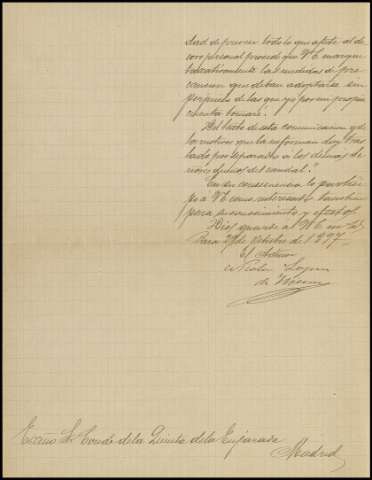 dad de proveer todo lo que afecte al de
coro personal procede que V E marque
taxativamente las medidas de pre
caucion que deban adoptarse sin
perjuicio de las que yo por mi propia
cuenta tomaré.
Del texto de esta comunicacion y de
los motivos que la informan doy tras
lado por separado a los demas Se
ñores dueños del caudal."
En su consecuencia lo partici
po á V E como interesado tambien
para su conocimiento y efectos.
Dios guarde á V E m
27 de Octubre de 1897
El
de
Excmo Sr Conde de la Quinta de la Enjarada
Madrid